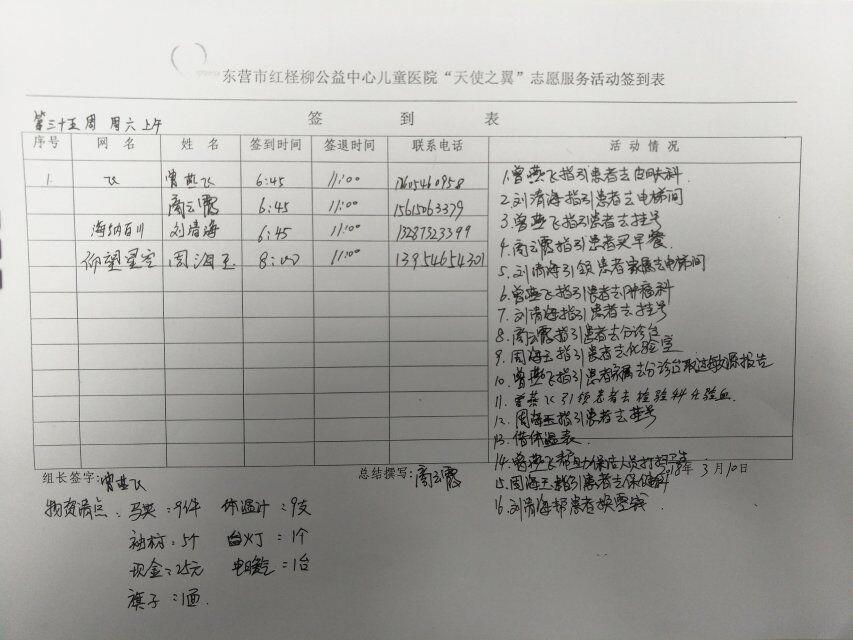 东营市红柽柳公益中心儿童医院“天使之翼”志愿服务活动签到表
第三十五周 周六上午
签 到 表
序号 网 名 姓 名 签到时间 签退时间 联系电话 活 动 情 况
1. 飞 曾燕飞 6:45 11:00
商云霞 6:45 11:00 15615063379
海纳百川 刘清海 6:45 11:00 13287323399
仰望星空 周海玉 8:00 11:00 13954654301
1.曾燕飞指引患者去口腔科
2.刘清海指引患者去电梯间
3.曾燕飞指引患者去挂号
4.商云霞指引患者买早餐
5.刘清海引领患者家属去电梯间
6.曾燕飞指引患者去肿瘤科
7.刘清海指引患者去挂号
8.商云霞指引患者去分诊台
9.周海玉指引患者去化验室
10.曾燕飞指引患者家属去分诊台取过敏源报告
11.曾燕飞引领患者去检验科化验血
12.周海玉指引患者去挂号
13.借体温表
14.曾燕飞帮助保洁人员打扫卫生
15.周海玉指引患者去保健科
16.刘清海帮患者换零钱
组长签字:曾燕飞 总结撰写:商云霞 2018年 3月10日
物资清点 马夹:9件 体温计:9支
袖标:5个 台灯:1个
现金:25元 电暖气:1台
旗子:1面